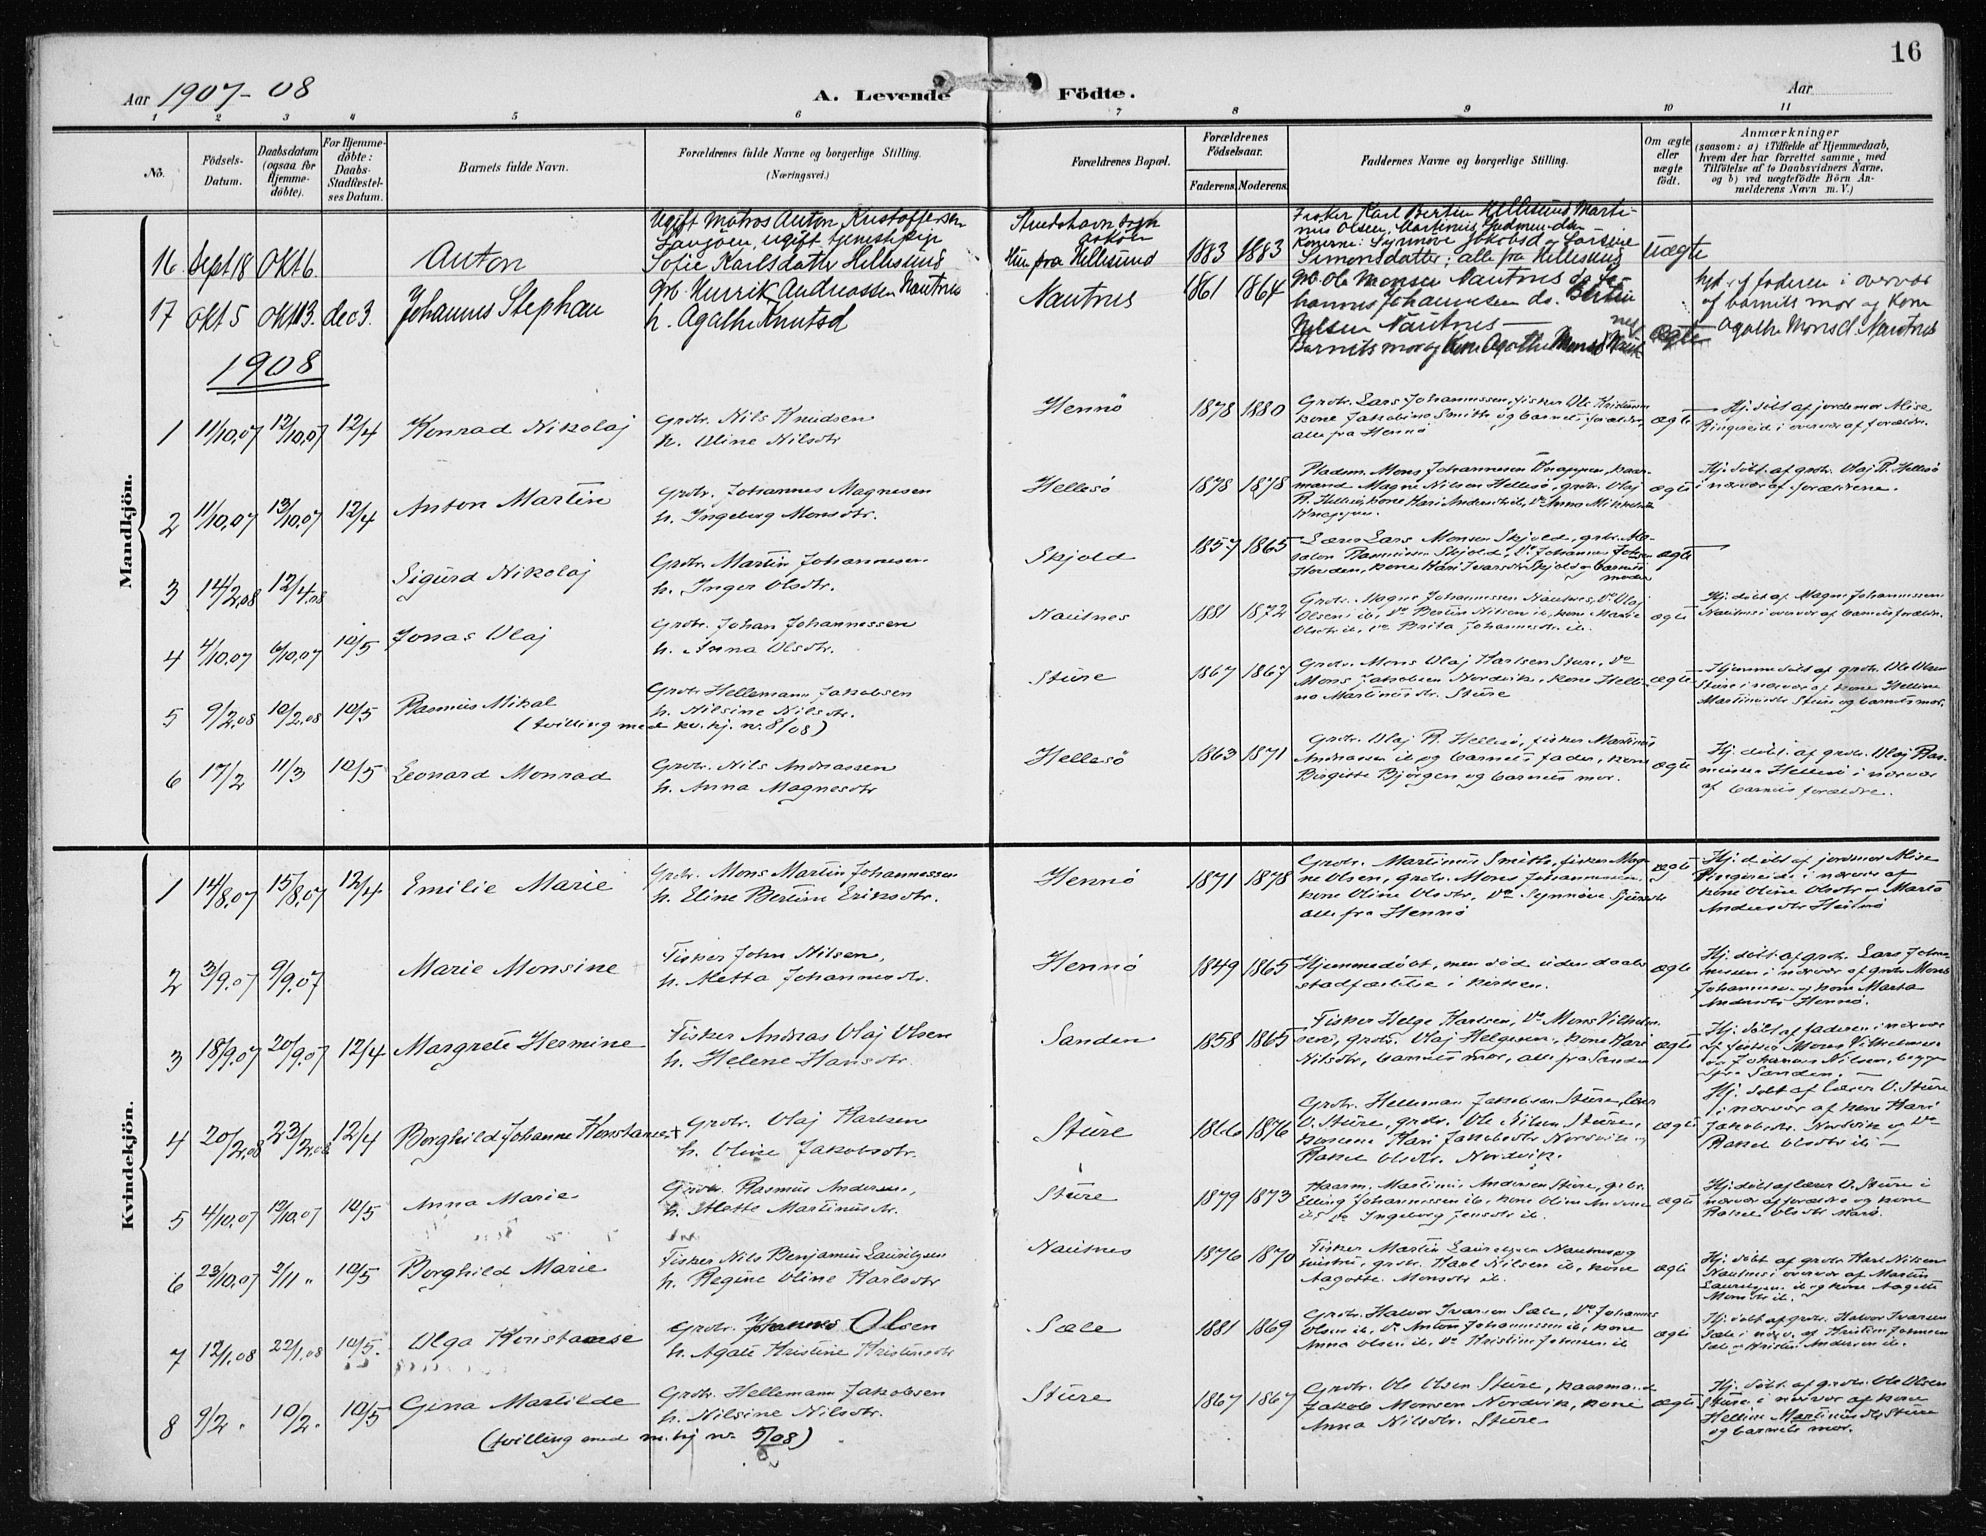 16
Aar 1907-08
A. Levende Födte.
Aar
1 2 3 4 5 6 7 8 9 10 11
No.
Födsels-Datum.
Daabsdatum (ogsaa for Hjemme-döbte).
For Hjemme-döbte: Daabs-Stadfæstel-ses Datum.
Barnets fulde Navn.
Forældrenes fulde Navne og borgerlige Stilling. (Næringsvei.)
Forældrenes Bopæl.
Forældrenes Födselsaar.
Faderens. Moderens.
Faddernes Navne og borgerlige Stilling.
Om ægte eller uægte födt.
Anmærkninger
(saasom: a) i Tilfælde af Hjemmedaab, hvem der har forrettet samme, med Tilföielse af to Daabsvidners Navne, og b) ved uægtefödte Börn An-melderens Navn m. V.)
Mandkjön.
16 Sept 18 Okt 6 Anton
Ugift Matros Anton Kristoffersen
ugift tjenestepige
Sofie Karlsdatter Hellesund
Hun fra Hellisund 1883 1883
Fisker Karl Bertin Hellisund Marti-
nus Olsen,
Konerne: Synnöve Jakobsd
Simonsdatter; alle fra Hellesund
Uægte
17 Okt 5 Okt 13. dec 3. Johannes Stephan
Gb. Henrik Andreassen Nautnes
h. Agathe Knutsd
Nautnes 1861 1864
Gb. Ole Monsen Nautnes
hannes Johannesen do.
Nilsen Nautnes
Barnets mor og kone Agathe Monsd
Ægte
af faderen i overvær
af barnets mor og kone
Agathe Monsd Nautnes
1908
1 11/10.07 12/10.07 12/4 Konrad Nikolaj
Grdbr. Nils Knudsen
h. Oline Nilsdtr
Hennö 1878 1880
Grdbr. Lars Johannessen, fisker Ole Kristensen
kone Jakobine Smith og barnets forældre,
alle fra Hennö
ægte
Hj. döbt af jordemor Alise
Ringereid i overvær af forældre.
2 11/10.07 13/10.07 12/4 Anton Martin
Grdbr. Johannes Magnesen
h. Ingeborg Monsdtr.
Hellesö 1878 1878
Pladsm. Mons Johannesen Knappen, kaar-
mand Magne Nilsen Hellesö, grdbr. Olaj
R. Hellesö, kone Kari Andersdtr ib, do Anna Mikkelsdtr
Knappen.
ægte
Hj. döbt af grdbr. Olaj R. Hellesö
i nærvær af forældrene.
3 14/2.08 12/4.08 Sigurd Nikolaj
Grdbr. Martin Johannesen
h. Inger Olsdtr.
Skjold 1857 1865
Lærer Lars Monsen Skjold, grdbr.
Rasmussen Skjold, do Johannes
kone Kari Ivarsdtr Skjold og barnets
moder
ægte
4 4/10.07 6/10.07 10/5 Jonas Olaj
Grdbr. Johan Johannessen
h. Anna Olsdtr.
Nautnes 1881 1872
Grdbr. Magne Johannessen Nautnes, do Olaj
Olsen ib, do Bertin Nilsen ib, kone Marie
Olsdtr ib, do Brita Johannesdtr ib.
ægte
Hj. döbt af Magne Johannessen
Nautnes i overvær af barnets forældre.
5 9/2.08 10/2.08 10/5 Rasmus Mikal
(tvilling med kv. kj. nr. 8/08)
Grdbr. Hellemann Jakobsen
h. Nilsine Nilsdtr.
Sture 1867 1867
Grdbr. Mons Olaj Karlsen Sture, do
Mons Jakobsen Nordvik, kone Helli-
na Martinusdtr. Sture
ægte
Hjemmedöbt af grdbr. Ole Olsen
Sture i nærvær af kone Helline
Martinusdtr Sture og barnets mor.
6 17/2 11/3 10/5 Leonard Monrad
Grdbr. Nils Andreassen
h. Anna Magnesdtr
Hellesö 1863 1871
Grdbr. Olaj R. Hellesö, fisker Martinus
Andreassen ib og barnets fader, kone
Birgitte Björgen og barnets mor.
ægte
Hj. döbt af grdbr. Olaj Ras-
mussen Hellesö i nærvær
af barnets forældre.
Kvindekjön.
1 14/8.07 15/8.07 12/4 Emilie Marie
Grdbr. Mons Martin Johannessen
h. Eline Bertine Eriksdtr.
Hennö 1871 1878
Grdbr. Martinus Smith, fisker Mag-
ne Olsen, grdbr. Mons Johannessen,
kone Oline Olsdtr, do Synnöve Sjursdtr
alle fra Hennö
ægte
Hj. döbt af jordmor Alise
Ringereid i nærvær af
kone Oline Olsdtr og Marta
Andersdtr Hennö
2 3/9.07 9/9.07 Marie Monsine
Fisker John Nilsen,
h. Metta Johannesdtr.
Hennö 1849 1865
Hjemmedöbt, men död uden daabs
stadfæstelse i kirken.
ægte
Hj. döbt af grdbr. Lars Johan-
nessen i nærvær af grdbr Mons
Johannesen og kone Marta
Andersdtr Hennö.
3 18/9.07 20/9.07 12/4 Margrete Hermine
Fisker Andreas Olaj Olsen
h. Helene Hansdtr.
Sanden 1858 1865
Fisker Helge Karlsen, do Mons Vilhelm-
sen, grdbr. Olaj Helgesen, kone Kari
Nilsdtr, barnets mor, alle fra Sanden
ægte
Hj. döbt af faderen i nærvær
af fisker Mons Vilhelmsen
og Johannes Nilsen, begge
fra Sanden.
4 20/2.08 23/2.08 12/4 Borghild Johanne Konstance
Grdbr. Olaj Karlsen
h. Oline Jakobsdtr.
Sture 1866 1876
Grdbr. Helleman Jakobsen Sture, lærer
O. Sture, grdbr. Ole Nilsen Sture,
konerne Kari Jakobsdtr Nordvik og
Rakel Olsdtr. Nordvik.
ægte
Hj. döbt af lærer O. Sture
i nærvær af kone Kari
Jakobsdtr. Nordvik og do
Rakel Olsdtr ib
5 4/10.07 10/10.07 10/5 Anna Marie
Grdbr. Rasmus Andersen,
h. Mette Martinusdtr.
Sture 1879 1873
Kaarm. Martinus Andersen Sture, grdbr.
Elling Johannessen ib, kone Oline
ib, do Ingeborg Jensdtr ib.
ægte
Hj. döbt af lærer O. Sture i
nærvær af forældre og kone
Rakel Olsdtr
6 23/10.07 3/11 " 10/5 Borghild Marie
Fisker Nils Benjamin Lauritzen
h. Regine Oline Karlsdtr
Nautnes 1876 1870
Fisker Martin Lauritzen Nautnes og
hustru, grdbr. Karl Nilsen ib, kone
Aagotte Monsdtr ib.
ægte
Hj. döbt af grdbr Karl Nilsen
Nautnes i overvær af Martin
Lauritzen ib og kone Aagotte
Monsdtr ib.
7 12/1.08 22/1.08 10/5. Olga Konstanse
Grdbr. Johannes Olsen
h. Agate Kristine Kristensdtr
Sæle 1881 1869
Grdbr. Halvor Ivarsen Sæle, do Johannes
Olsen ib, do Anton Johannessen ib, kone
Anna Olsen ib, do Kristine Johnsen ib
ægte
Hj. döbt af grdbr. Halvor Ivarsen
Sæle i nærv. af Kristine Johnsen
Sæle og Kristen Andersen ib.
8 9/2 " 10/2 " 10/5 Gina Martilde
(tvilling med m. kj nr. 5/08)
Grdbr. Hellemann Jakobsen
h. Nilsine Nilsdtr.
Sture 1867 1867
Grdbr. Ole Olsen Sture, kaarmand
Jakob Monsen Nordvik, kone
Anna Nilsdtr. Sture
ægte
Hj. döbt af grdbr. Ole Olsen
Sture i nærvær af kone
Helline Martinusdtr Sture
og barnets mor.